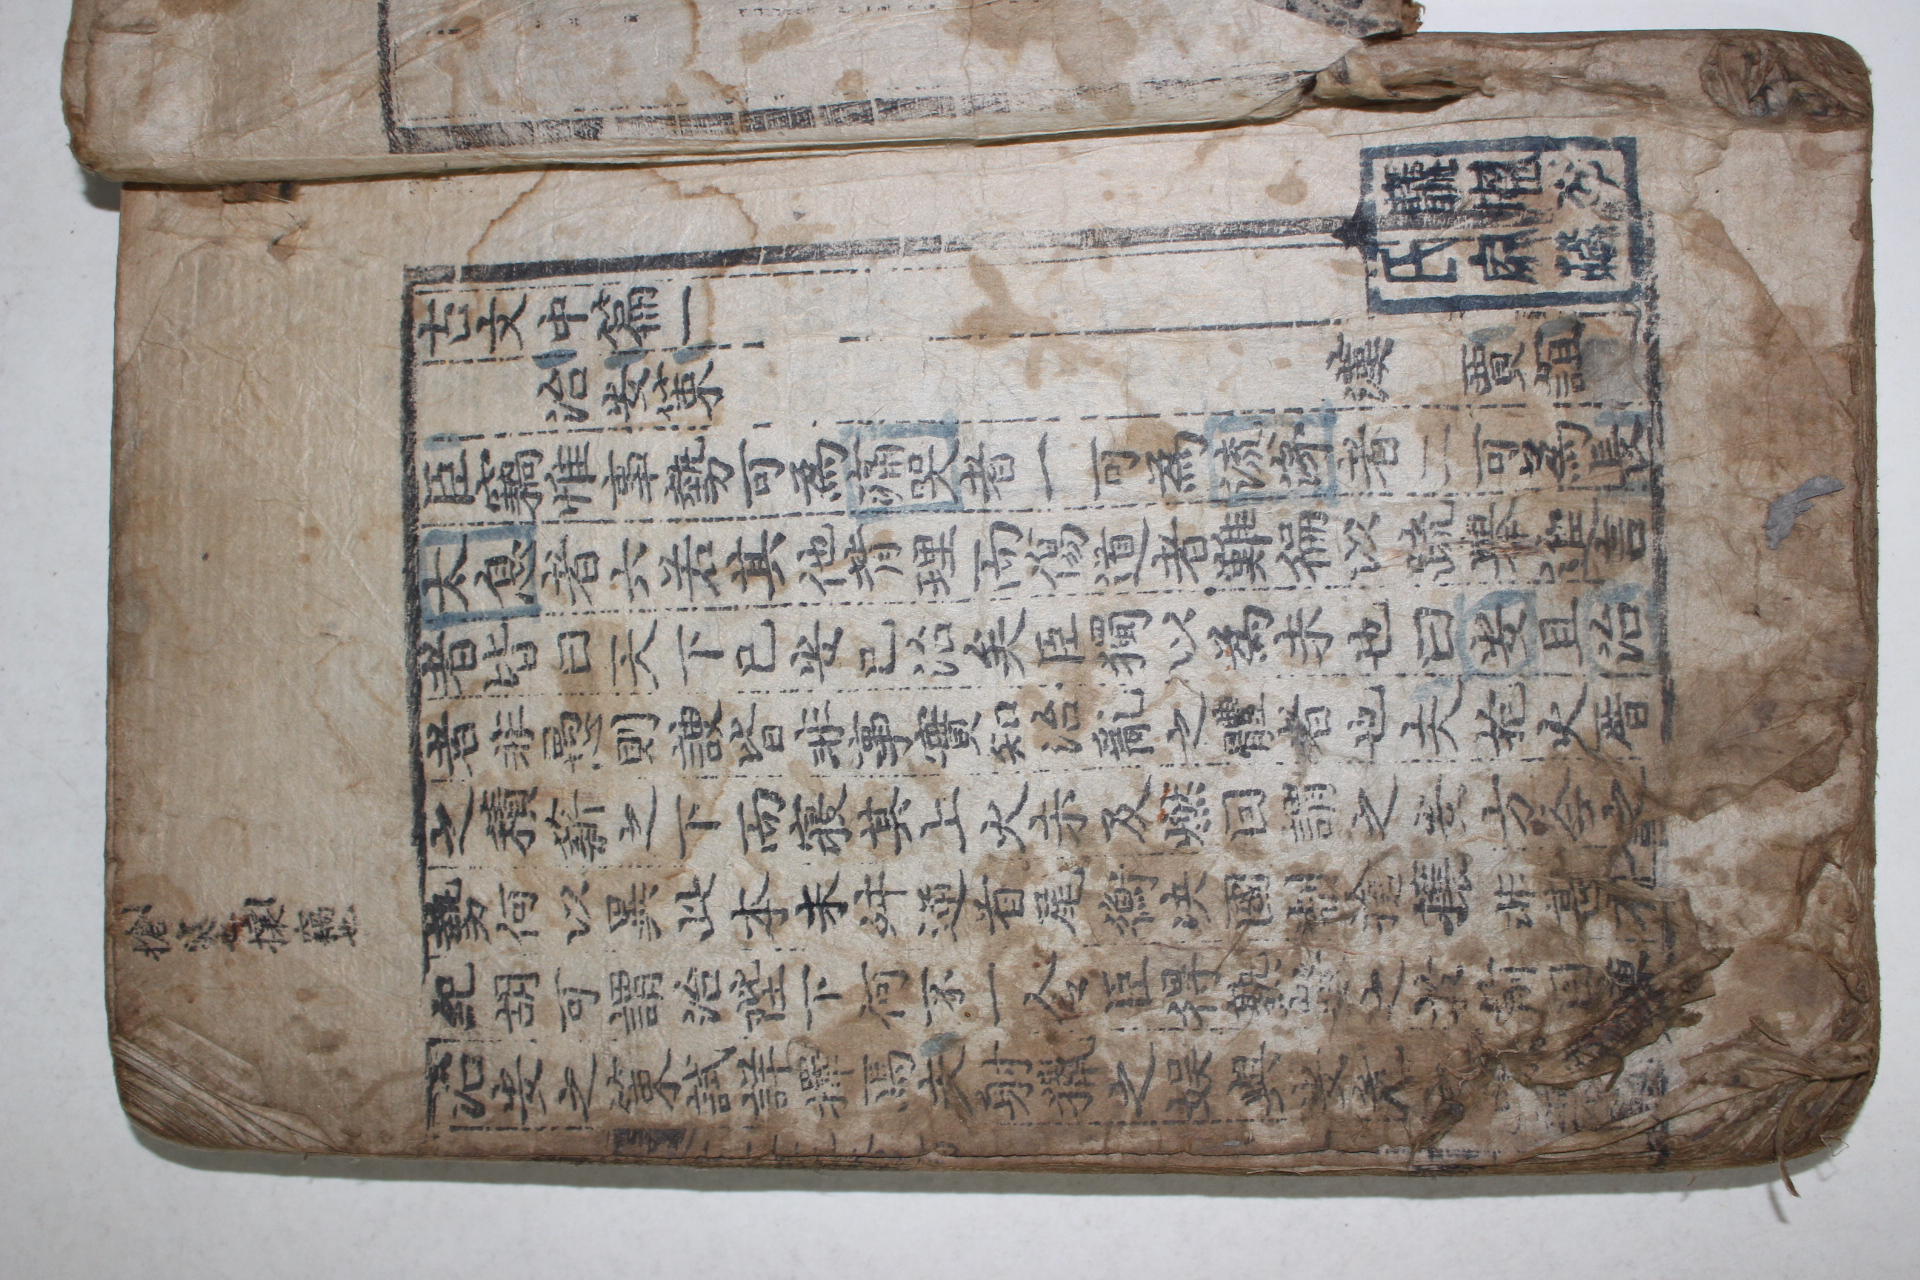 古文中篇一
治安策 漢 賈誼
臣竊惟事勢可爲痛哭者一可爲流涕者二可爲長
太息者六若其他背理而傷道者難徧以疏擧進言
者皆曰天下已安已治矣臣獨以爲未也曰安且治
者非愚則諛皆非事實知治亂之體者也夫抱火厝
之積薪之下而寢其上火未及燃因謂之安方今之
勢何以異此本末舛逆首尾衡決國制搶攘非甚有
紀胡可謂治陛下何不一令臣得孰數之於前因陳
治安之策試詳擇焉夫射獵之娛與安